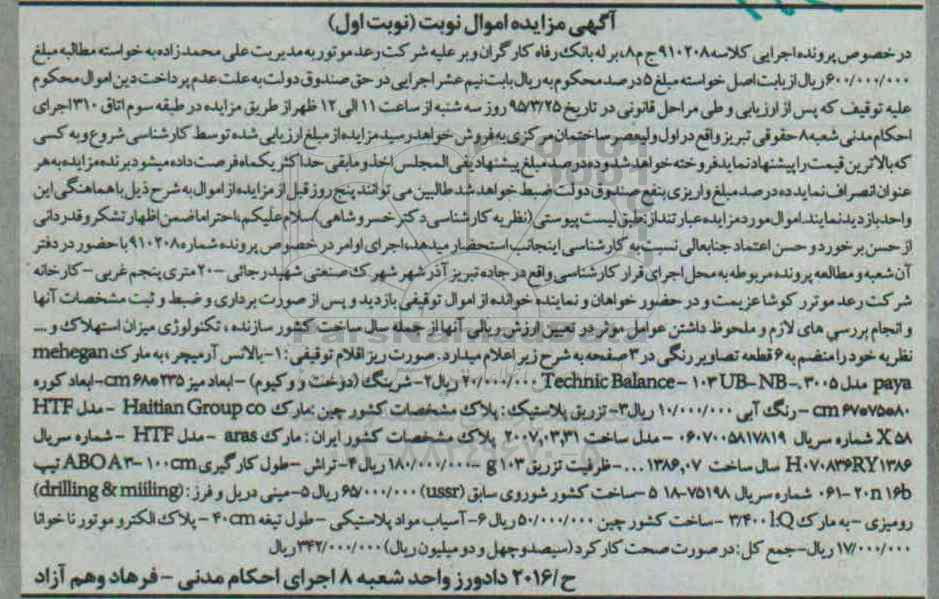 آگهی مزایده اموال نوبت (نوبت اول)
در خصوص پرونده اجرایی کلاسه ۹۱۰۲۰۸ ج م۸، بر له بانک رفاه کارگران و بر علیه شرکت رعد موتور به مدیریت علی محمدزاده به خواسته مطالبه مبلغ
۶۰۰/۰۰۰/۰۰۰ ریال از بابت اصل خواسته مبلغ ۵ درصد محکوم به ریال بابت نیم عشر اجرایی در حق صندوق دولت به علت عدم پرداخت دین اموال محکوم
علیه توقیف که پس از ارزیابی و طی مراحل قانونی در تاریخ ۹۵/۳/۲۵ روز سه شنبه از ساعت ۱۱ الی ۱۲ ظهر از طریق مزایده در طبقه سوم اتاق ۳۱۰ اجرای
احکام مدنی شعبه ۸ حقوقی تبریز واقع در اول ولیعصر ساختمان مرکزی به فروش خواهد رسید مزایده از مبلغ ارزیابی شده توسط کارشناسی شروع و به کسی
که بالاترین قیمت را پیشنهاد نماید فروخته خواهد شد و ده درصد مبلغ پیشنهاد بفی المجلس اخذ و مابقی حداکثر یکماه فرصت داده میشود برنده مزایده به هر
عنوان انصراف نماید ده درصد مبلغ واریزی بنفع صندوق دولت ضبط خواهد شد طالبین می توانند پنج روز قبل از مزایده از اموال به شرح ذیل با هماهنگی این
واحد بازدید نمایند. اموال مورد مزایده عبارتند از: طبق لیست پیوستی (نظریه کارشناسی دکتر خسروشاهی) سلام علیکم، احتراما ضمن اظهار تشکر و قدردانی
از حسن برخورد و حسن اعتماد جنابعالی نسبت به کارشناسی اینجانب استحضار میدهد اجرای اوامر در خصوص پرونده شماره ۹۱۰۲۰۸ با حضور در دفتر
آن شعبه و مطالعه پرونده مربوطه به محل اجرای قرار کارشناسی واقع در جاده تبریز آذرشهر شهرک صنعتی شهید رجائی - ۲۰ متری پنجم غربی - کارخانه
شرکت رعد موتور کوشا عزیمت و در حضور خواهان و نماینده خوانده از اموال توقیفی بازدید و پس از صورت برداری و ضبط و ثبت مشخصات آنها
و انجام بررسی های لازم و ملحوظ داشتن عوامل موثر در تعیین ارزش ریالی آنها از جمله سال ساخت کشور سازنده، تکنولوژی میزان استهلاک و ...
نظریه خود را منضم به ۶ قطعه تصاویر رنگی در ۳ صفحه به شرح زیر اعلام میدارد. صورت ریز اقلام توقیفی: ۱- بالانس آرمیچر، به مارک mehegan
paya مدل Technic Balance - ۱۰۳ UB- NB-.۳۰۰۵ ۲۰/۰۰۰/۰۰۰ ریال ۲- شرینگ (دوخت و وکیوم) - ابعاد میز ۲۳۵*۶۸ cm - ابعاد کوره
۸۰*۷۵*۶۷ cm - رنگ آبی ۱۰/۰۰۰/۰۰۰ ریال ۳- تزریق پلاستیک: پلاک مشخصات کشور چین: مارک Haitian Group co - مدل HTF
X۵۸ شماره سریال ۰۶۰۷۰۰۵۸۱۷۸۱۹ - مدل ساخت ۲۰۰۷,۰۳,۳۱ پلاک مشخصات کشور ایران: مارک aras - مدل HTF - شماره سریال
H۰۷۰۸۳۶RY۱۳۸۶ سال ساخت ۱۳۸۶,۰۷ ... - ظرفیت تزریق ۱۰۳ g - ۱۸۰/۰۰۰/۰۰۰ ریال ۴- تراش - طول کارگیری ۱۰۰cm - ABOA۳ تیپ
۱۶b ۲۰n -۰۶۱ شماره سریال ۷۵۱۹۸-۱۸ ۵ - ساخت کشور شوروی سابق (ussr) ۶۵/۰۰۰/۰۰۰ ریال ۵- مینی دریل و فرز: (drilling & miiling)
رومیزی - به مارک l:Q ۳/۴۰۰ - ساخت کشور چین ۵۰/۰۰۰/۰۰۰ ریال ۶- آسیاب مواد پلاستیکی - طول تیغه ۴۰cm - پلاک الکتروموتور ناخوانا
۱۷/۰۰۰/۰۰۰ ریال - جمع کل: در صورت صحت کارکرد (سیصد و چهل و دو میلیون ریال) ۳۴۲/۰۰۰/۰۰۰ ریال
ح/۲۰۱۶ دادورز واحد شعبه ۸ اجرای احکام مدنی - فرهاد وهم آزاد